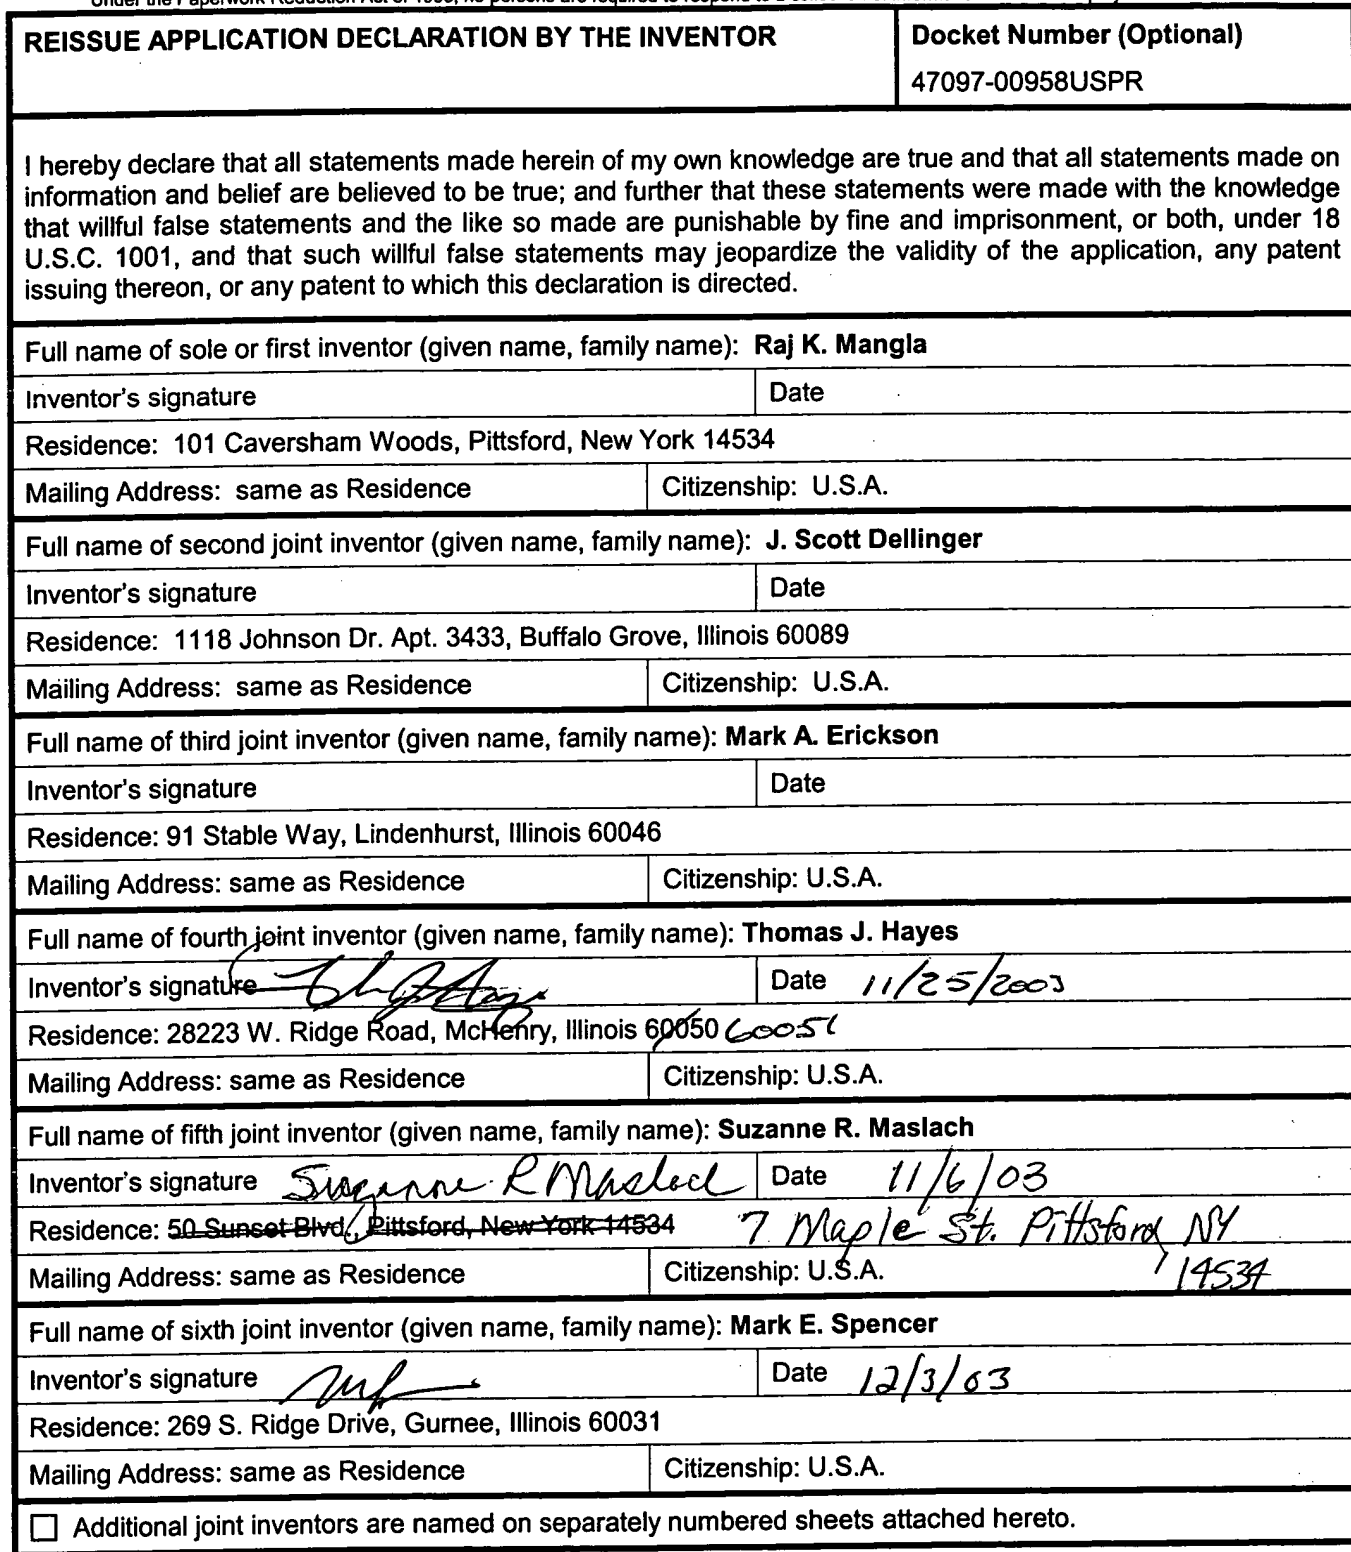 REISSUE APPLICATION DECLARATION BY THE INVENTOR
Docket Number (Optional)
47097-00958USPR
I hereby declare that all statements made herein of my own knowledge are true and that all statements made on
information and belief are believed to be true; and further that these statements were made with the knowledge
that willful false statements and the like so made are punishable by fine and imprisonment, or both, under 18
U.S.C. 1001, and that such willful false statements may jeopardize the validity of the application, any patent
issuing thereon, or any patent to which this declaration is directed.
Full name of sole or first inventor (given name, family name): Raj K. Mangla
Inventor's signature Date
Residence: 101 Caversham Woods, Pittsford, New York 14534
Mailing Address: same as Residence Citizenship: U.S.A.
Full name of second joint inventor (given name, family name): J. Scott Dellinger
Inventor's signature Date
Residence: 1118 Johnson Dr. Apt. 3433, Buffalo Grove, Illinois 60089
Mailing Address: same as Residence Citizenship: U.S.A.
Full name of third joint inventor (given name, family name): Mark A. Erickson
Inventor's signature Date
Residence: 91 Stable Way, Lindenhurst, Illinois 60046
Mailing Address: same as Residence Citizenship: U.S.A.
Full name of fourth joint inventor (given name, family name): Thomas J. Hayes
Inventor's signature Date 11/25/2003
Residence: 28223 W. Ridge Road, McHenry, Illinois 60050 60051
Mailing Address: same as Residence Citizenship: U.S.A.
Full name of fifth joint inventor (given name, family name): Suzanne R. Maslach
Inventor's signature Suzanne R Maslach Date 11/6/03
Residence: 50 Sunset Blvd., Pittsford, New York 14534 7 Maple St. Pittsford, NY
14534
Mailing Address: same as Residence Citizenship: U.S.A.
Full name of sixth joint inventor (given name, family name): Mark E. Spencer
Inventor's signature Date 12/3/03
Residence: 269 S. Ridge Drive, Gurnee, Illinois 60031
Mailing Address: same as Residence Citizenship: U.S.A.
Additional joint inventors are named on separately numbered sheets attached hereto.